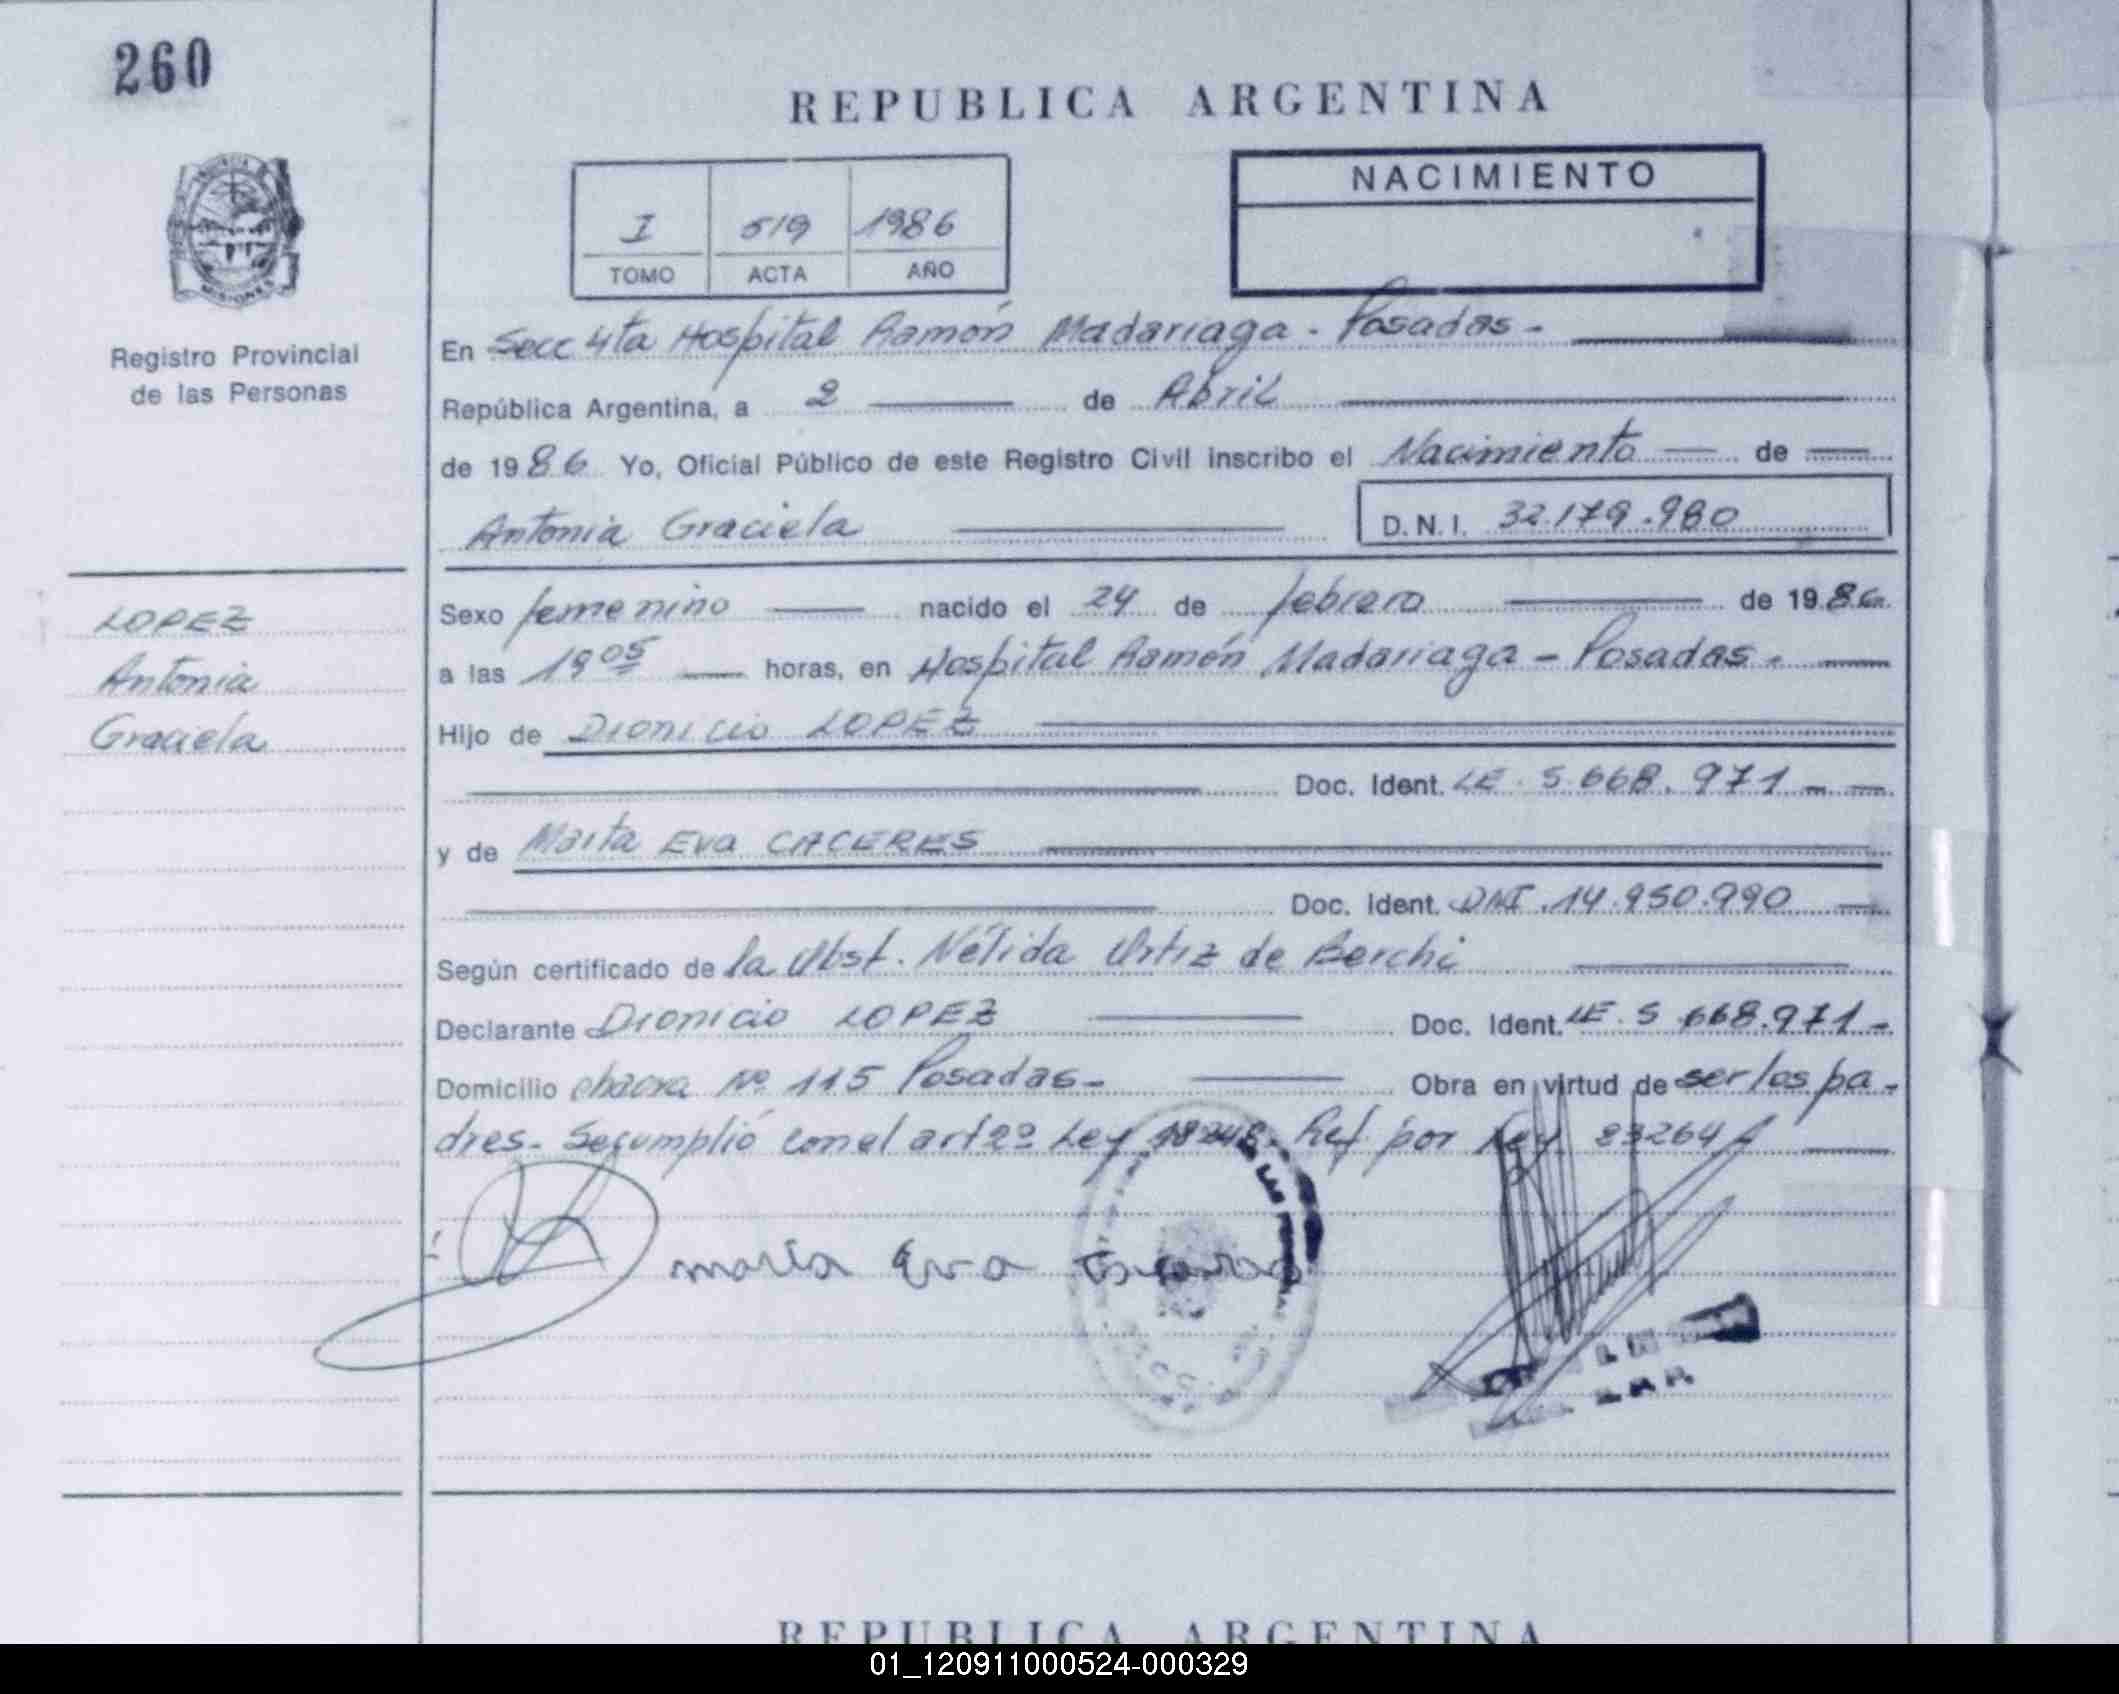 260
REPUBLICA ARGENTINA
I 519 1986
TOMO ACTA AÑO
NACIMIENTO
Registro Provincial
de las Personas
En Secc 4ta Hospital Ramón Madariaga - Posadas -
República Argentina, a 2 de Abril
de 1986 Yo, Oficial Público de este Registro Civil inscribo el Nacimiento de
Antonia Graciela D.N.I. 32.179.980
LOPEZ
Antonia
Graciela
Sexo femenino nacido el 24 de febrero de 1986
a las 19 05 horas, en Hospital Ramón Madariaga - Posadas -
Hijo de Dionicio LOPEZ
Doc. Ident. LE. 5.668.971 -
y de Marta Eva CACERES
Doc. Ident. DNI. 14.950.990
Según certificado de la Obst. Nélida Ortiz de Berchi
Declarante Dionicio LOPEZ Doc. Ident. LE. 5.668.971 -
Domicilio chacra Nº 115 Posadas - Obra en virtud de ser los pa-
dres - Se cumplió con el art 2º Ley 18248 - Ref. por Ley 23264
maria Eva
REPUBLICA ARGENTINA
01_120911000524-000329